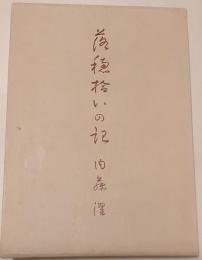 落穂拾いの記
内藤濯